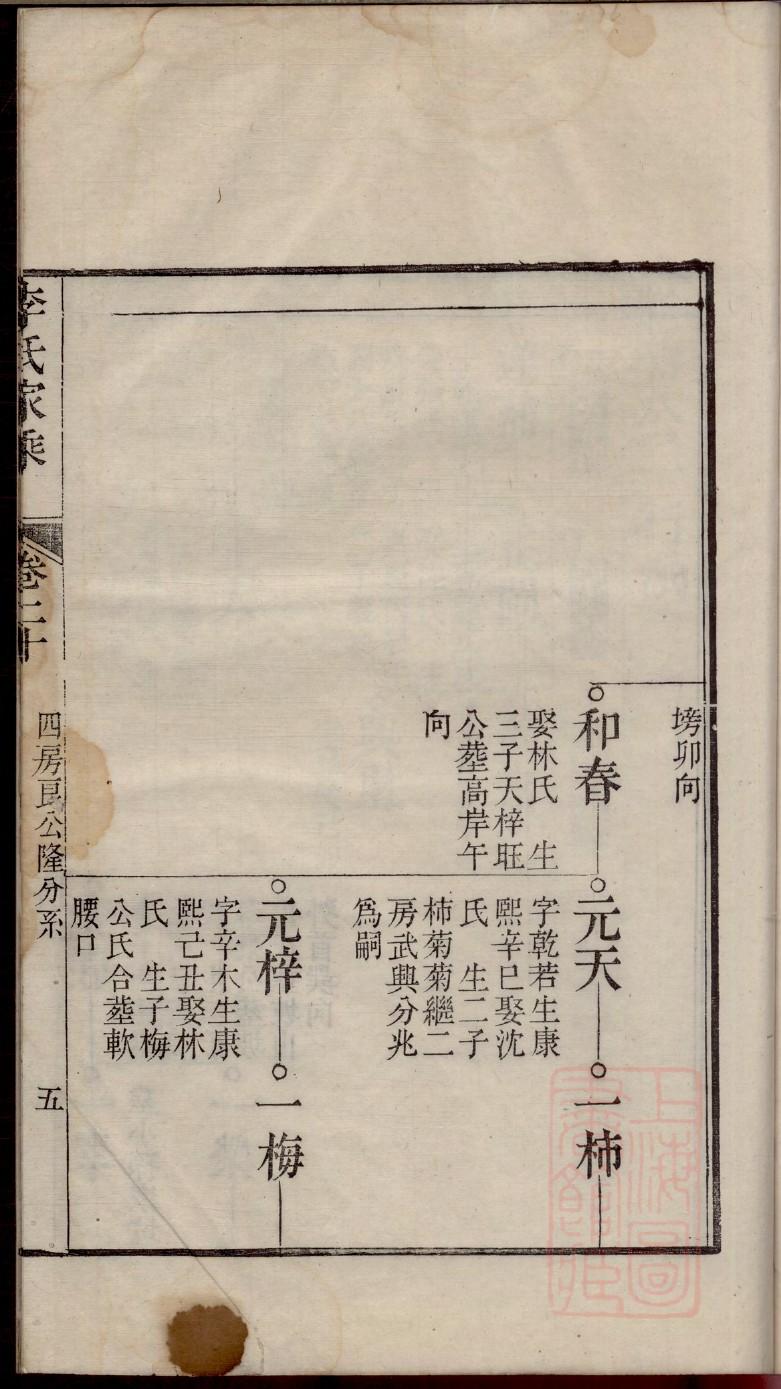 塝卯向
和春
娶林氏　生
三子天梓旺
公塟高岸午
向
元天
字乾若生康
熙辛巳娶沈
氏　生二子
柿菊菊繼二
房武興分兆
爲嗣
一柿
元梓
字辛木生康
熙己丑娶林
氏　生子梅
公氏合塟軟
腰口
一梅
李氏家乘
卷二十
四房良公隆分系
五
上海圖